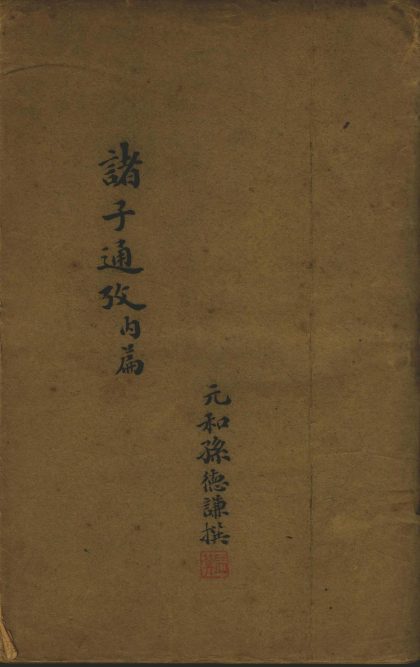 諸子通攷內篇
元和孫德謙撰